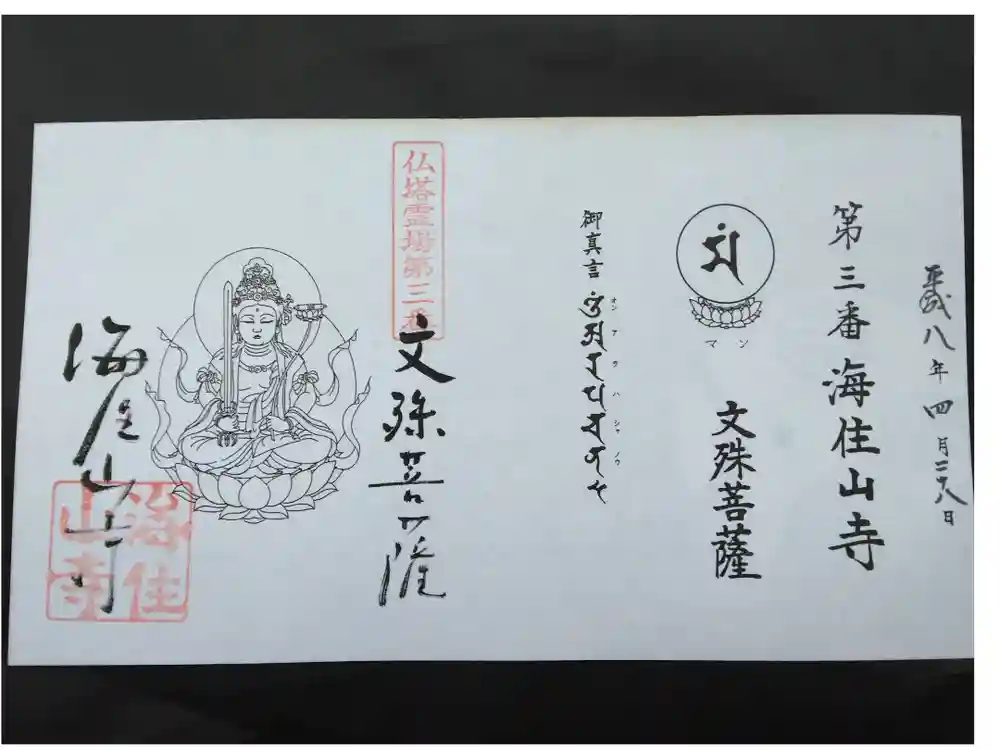 平成八年四月二十八日
第三番海住山寺
マン
文殊菩薩
御真言
オン ア ラ ハ シャ ノウ
仏塔霊場第三番
文殊菩薩
海住山寺
海住山寺